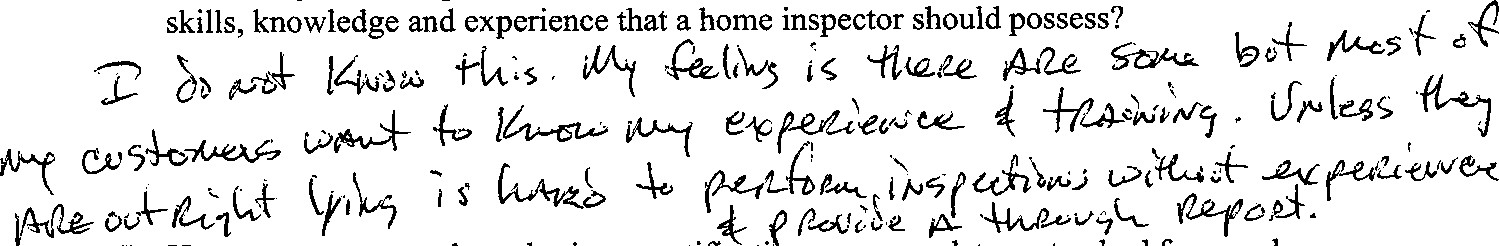 skills, knowledge and experience that a home inspector should possess?
I do not know this. My feeling is there are some but most of
my customers want to know my experience & training. Unless they
are outright lying is hard to perform inspections without experience
& provide a through report.